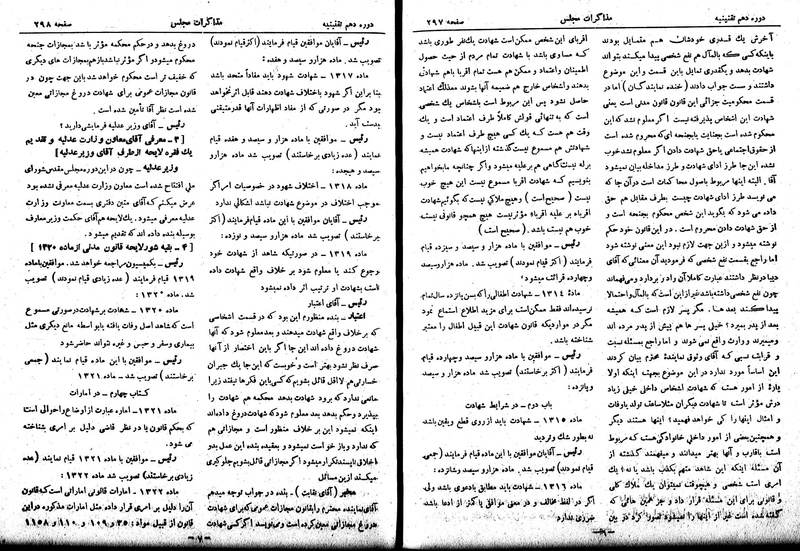 دوره دهم تقنینیه
مذاکرات مجلس
صفحه ۲۹۷
آخرش یك قدری خودشان هم متمایل بودند
باینکه کسی که بالمآل هم نفع شخصی پیدا میکند بتواند
شهادت بدهد ویکقدری تمایل باین قسمت و این موضوع
داشتند و سمت جواب دادند (خنده نمایندگان) اما در
قسمت محکومیت جزائی این قانون قانون مدنی است یعنی
شهادت این اشخاص پذیرفته نیست اگر معلوم شد که این
محکوم شده است بجنایت یا بجنحه‌ای که محروم شده است
از حقوق اجتماعی یا حق شهادت دادن اگر محروم
نشده این جا طرز ادای شهادت و طرز مداخله بیان نمیشود
آقا . البته اینها مربوط باصول محاکمات است در آن جا که
می نویسد طرز ادای شهادت چیست بطرف مقابل هم حق
داده می شود که بگوید این شخص محکوم بجنحه است و
از حق شهادت دادن محروم است . در این خصوص هم حکم
نوشته میشود و ازین جهت لازم نبود این معنی نوشته شود
اما راجع بقسمت نفع شخصی که فرمودید آن معنائی که آقای
دیبا در نظر داشتند عبارت کاملاً آن را در بر دارد و می فهماند
چون نفع شخصی داشته باشد غیر از این است که بالمآل و احتمالا
پیدا بکند بعدها . مگر پسر لازم است که همیشه
بعد از پدر بمیرد؟ خیلی پسر ها هم پیش از پدر مرده اند
ومیمیرند و وارث واقع نمی شوند و اما راجع بمسئله نسبت
و قرابت نسبی که آقای وثوق نمایندهٔ محترم بیان کردند
این اساساً مورد ندارد در این موضوع بجهت اینکه اولا
پارهٔ از امور هست که شهادت اشخاص داخلی خیلی زیاد
درش مؤثر است تا شهادت دیگران مثلا سقف تولد یا وفات
و امثال اینها را کی خواهد فهمید؟ اینها هستند دیگر
و همچنین بعضی از امور داخلی خانوادگی هست که مربوط
است باقارب و آنها بهتر میدانند و میفهمند گذشته از
آن مسئله اینکه این شاهد متهم بکذب باشد یا نه؟ یك
امری است شخصی و هیچوقت نمیتوان یك ملاك کلی
و قانونی برای این مسئله قرار داد و جز همین حالتی که
گفته شده است غیر از اینها را نمیشود تصور کرد در بین
اقربای این شخص ممکن است شهادت یکنفر طوری باشد
که مساوی باشد با شهادت تمام مردم از حیث حصول
اطمینان واعتماد و ممکن هم هست تمام اقربا باهم شهادت
بدهند واشخاص خارج هم ضمیمه آنها بشوند معذلك اعتماد
حاصل نشود پس این مربوط است باشخاص یك شخصی
است که به تنهائی قولش کاملاً طرف اعتماد است و یك
وقت هم هست که یك کسی هیچ طرف اعتماد نیست و
شهادتش هم مسموع نیست گذشته از اینها که شهادت همیشه
بر له نیست گاهی هم بر علیه میشود واگر چنانچه ما بخواهیم
بنویسیم که شهادت اقربا مسموع نیست این هیچ خوب
نیست (صحیح است) و هیچ ملاکی نیست که بگوئیم شهادت
اقرباء بر علیه اقرباء مؤثر نیست هیچ همچو قانونی نیست
خوب هم نیست باشد . (صحیح است)
رئیس - موافقین با ماده هزار و سیصد و سیزده قیام
فرمایند (اکثر قیام نمودند) تصویب شد . ماده هزار و سیصد
وچهارده قرائت میشود:
مادهٔ ۱۳۱٤ - شهادت اطفالی را که بسن پانزده سال تمام .
نرسیده‌اند فقط ممکن است برای مزید اطلاع استماع نمود
مگر در مواردیکه قانون شهادت این قبیل اطفال را معتبر
شناخته باشد.
رئیس - موافقین با ماده هزار وسیصد وچهارده قیام
فرمایند (اکثر برخاستند) تصویب شد . ماده هزار و سیصد
وپانزده:
باب دوم - در شرایط شهادت
ماده ۱۳۱۵ - شهادت باید از روی قطع و یقین باشد
نه بطور شك وتردید
رئیس - آقایان موافقین با این ماده قیام فرمایند (جمعی
قیام نمودند) تصویب شد. ماده هزار و سیصد وشانزده :
ماده ۱۳۱٦ - شهادت باید مطابق بادعوی باشد ولی
اگر در لفظ مخالف و در معنی موافق یا کمتر از ادعا باشد
ضرری ندارد
- ٦ -
دوره دهم تقنینیه
مذاکرات مجلس
صفحه ۲۹۸
رئیس - آقایان موافقین قیام فرمایند (اکثر قیام نمودند)
تصویب شد. ماده هزارو سیصد و هفده :
ماده ۱۳۱۷ - شهادت شهود باید مفاداً متحد باشد
بنا بر این اگر شهود باختلاف شهادت دهند قابل اثر نخواهد
بود مگر در صورتی که از مفاد اظهارات آنها قدر متیقنی
بدست آید.
رئیس - موافقین با ماده هزار و سیصد و هفده قیام
نمایند (عده زیادی برخاستند) تصویب شد ماده هزار و
سیصد و هیجده :
ماده ۱۳۱۸ - اختلاف شهود در خصوصیات امر اگر
موجب اختلاف در موضوع شهادت نباشد اشکالی ندارد
رئیس - آقایان موافقین با این ماده قیام فرمایند (اکثر
برخاستند) تصویب شد ماده هزار و سیصد و نوزده:
ماده ۱۳۱۹ - در صورتیکه شاهد از شهادت خود
رجوع کند یا معلوم شود بر خلاف واقع شهادت داده
است بشهادت او ترتیب اثر داده نمیشود
رئیس - آقای اعتبار
اعتبار - بنده منظورم این بود که در قسمت اشخاصی
که بر خلاف واقع شهادت میدهند و بعد معلوم شود که آنها
شهادت دروغ داده اند این جا اگر باین اختصار از آنها
صرف نظر نشود بهتر است و خوبست که این جا یك جبران
خسارتی هم لااقل قائل بشویم که کسی باین فکرها نیفتد زیرا
مانعی ندارد که برود شهادت بدهد محکمه هم شهادت را
بپذیرد و حکم بدهد بعد معلوم شود که شهادت دروغ داده اند
اینکه نمیشود این بر خلاف منظور است و مجازاتی هم
که ندارد وباز خواست نمیشود و بعقیده بنده این عمل بدو
اخلاق ناپسند تکرار میشود اگر مجازاتی قائل بشویم جلوگیری
میکند از بین مسائل
مخبر (آقای نقابت) - بنده در جواب توجه میدهم
آقای نماینده محترم را بقانون مجازات عمومی که برای شهادت
دروغ مجازاتی معین کرده است و می نویسد اگر کسی شهادت
دروغ بدهد و در حکم محکمه مؤثر باشد بمجازات جنحه
محکوم میشود و اگر مؤثر نباشد بازهم بمجازات های دیگری
که خفیف تر است محکوم خواهد شد باین جهت چون در
قانون مجازات عمومی برای شهادت دروغ مجازاتی معین
شده است نظر آقا تأمین شده است.
رئیس - آقای وزیر عدلیه فرمایشی دارید؟
[ ۳ - معرفی آقای معاون وزارت عدلیه و تقدیم
یك فقره لایحه از طرف آقای وزیر عدلیه ]
وزیر عدلیه - چون در این دوره مجلس مقدس شورای
ملی افتتاح شده است معاون وزارت عدلیه معرفی نشده بود
عرض میکنم که آقای متین دفتری بسمت معاونت وزارت
عدلیه معرفی میشود . یك لایحه هم آقای حکمت وزیر معارف
بوسیله بنده داده اند که تقدیم میشود .
[ ٤ - بقیه شور لایحه قانون مدنی از ماده ۱۳۲۰ ]
رئیس - بکمیسیون راجعه خواهد شد. موافقین با ماده
۱۳۱۹ قیام فرمایند (عده زیادی قیام نمودند) تصویب
شد . ماده ۱۳۲۰:
ماده ۱۳۲۰ - شهادت بر شهادت در صورتی مسموع
است که شاهد اصل وفات یافته یا بواسطه مانع دیگری مثل
بیماری وسفر و حبس و غیره نتواند حاضر شود
رئیس - موافقین با این ماده قیام نمایند (جمعی
برخاستند) تصویب شد . ماده ۱۳۲۱.
کتاب چهارم - در امارات
ماده ۱۳۲۱ - اماره عبارت از اوضاع و احوالی است
که بحکم قانون یا در نظر قاضی دلیل بر امری شناخته
می شود.
رئیس - موافقین با ماده ۱۳۲۱ قیام نمایند (عده
زیادی برخاستند) تصویب شد . ماده ۱۳۲۲
ماده ۱۳۲۲ - امارات قانونی اماراتی است که قانون
آن را دلیل بر امری قرار داده مثل امارات مذکوره در این
قانون از قبیل مواد : ۳۵ و ۱۰۹ و ۱۱۰ و ۱۱۵۸
- ۷ -